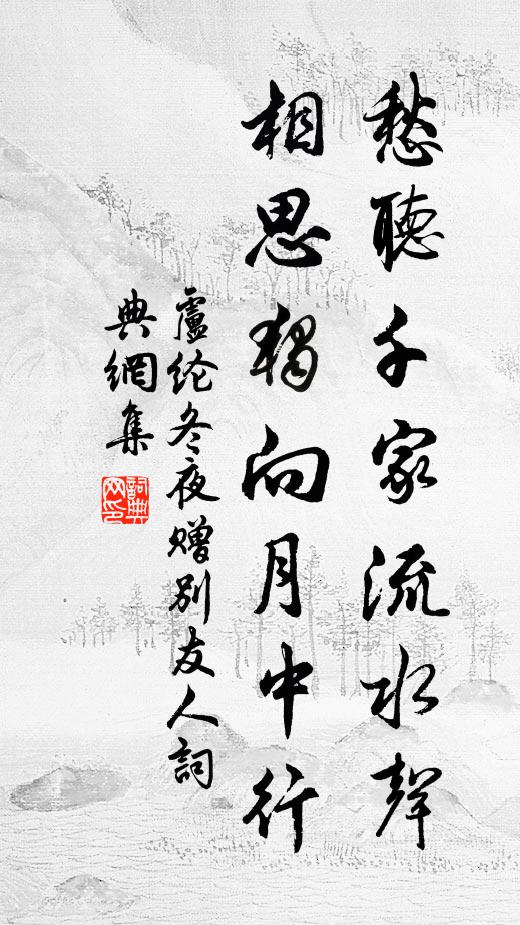 愁聽千家流水聲
相思獨向月中行
盧纶冬夜赠别友人詞
典網集
詞典
网印